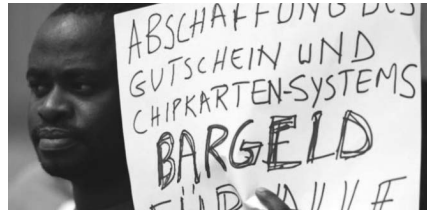 ABSCHAFFUNG DES
GUTSCHEIN UND
CHIPKARTEN-SYSTEMS
BARGELD
FÜR